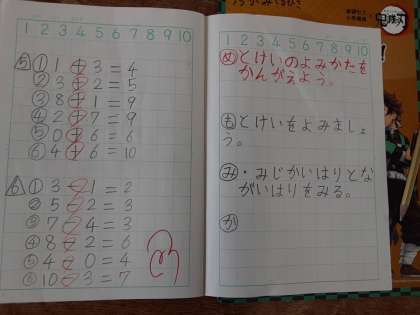 1 2 3 4 5 6 7 8 9 10
5 ① 1 + 3 = 4
② 3 + 2 = 5
③ 8 + 1 = 9
④ 2 + 7 = 9
⑤ 0 + 6 = 6
⑥ 4 + 6 = 10
6 ① 3 - 1 = 2
② 5 - 2 = 3
③ 7 - 4 = 3
④ 8 - 2 = 6
⑤ 4 - 0 = 4
⑥ 10 - 3 = 7
1 2 3 4 5 6 7 8 9 10
め とけいのよみかたを
かんがえよう。
も とけいをよみましょ
う。
み ・みじかいはりとな
がいはりをみる。
か